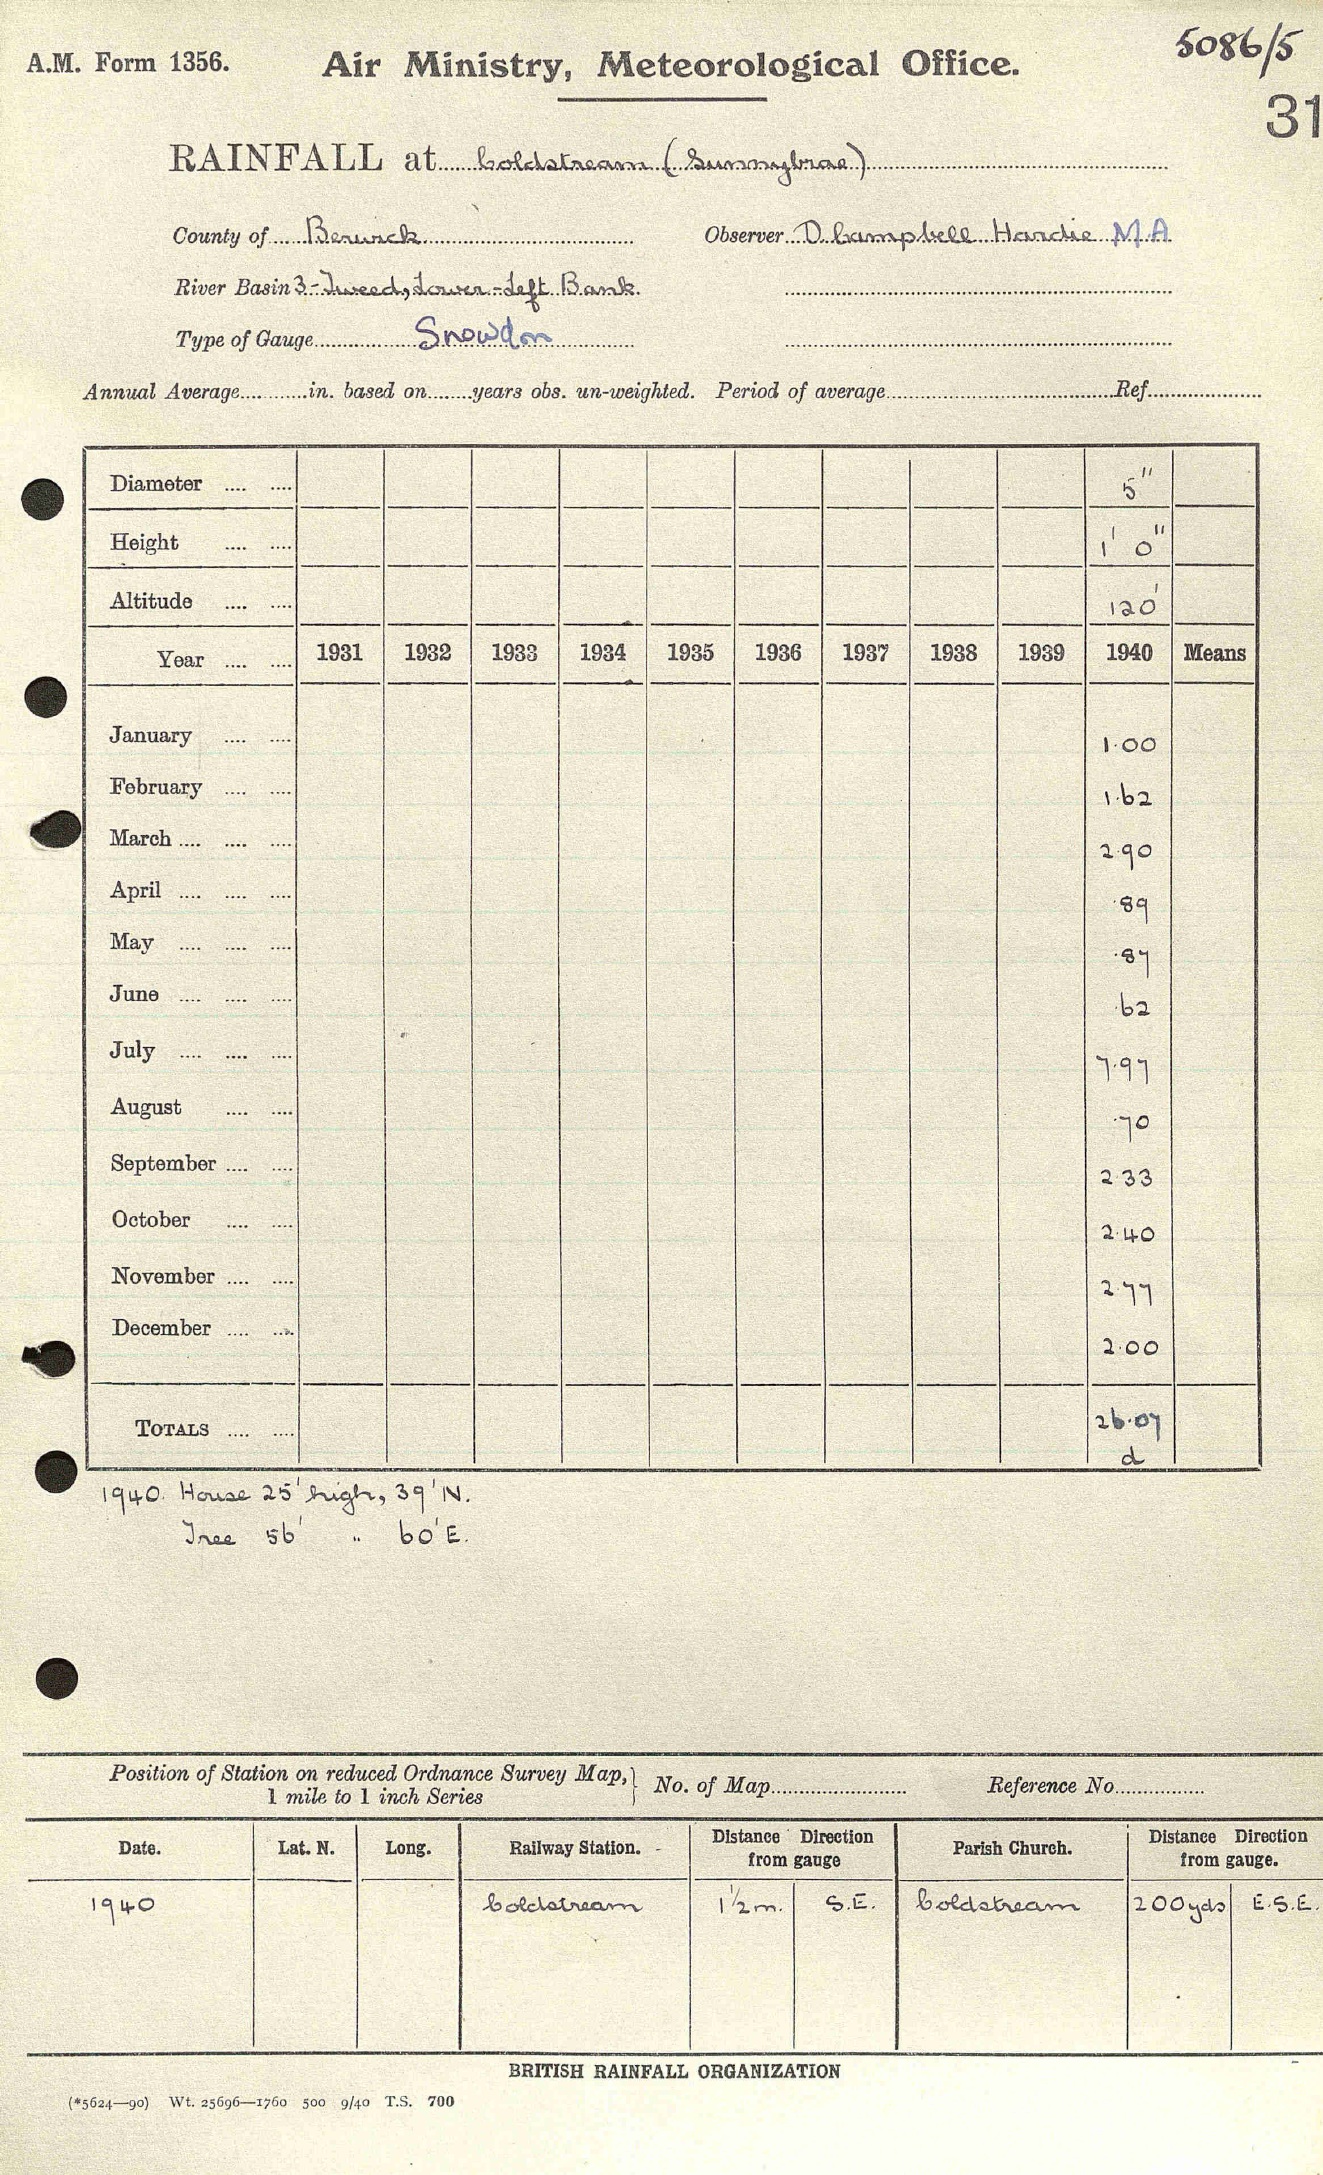 A.M. Form 1356. Air Ministry, Meteorological Office. 5086/5
31
RAINFALL at Coldstream (Sunnybrae)
County of Berwick Observer D. Campbell Hardie M.A
River Basin 3-Tweed, Lower-Left Bank.
Type of Gauge Snowdon
Annual Average in. based on years obs. un-weighted. Period of average Ref.
Diameter .... .... 5"
Height .... .... 1' 0"
Altitude .... .... 120'
Year .... .... 1931 1932 1933 1934 1935 1936 1937 1938 1939 1940 Means
January .... .... 1.00
February .... .... 1.62
March .... .... .... 2.90
April .... .... .... .89
May .... .... .... .87
June .... .... .... .62
July .... .... .... 7.97
August .... .... .70
September .... .... 2.33
October .... .... 2.40
November .... .... 2.77
December .... .... 2.00
TOTALS .... .... 26.07
d
1940. House 25' high, 39' N.
Tree 56' " 60' E.
Position of Station on reduced Ordnance Survey Map, } No. of Map Reference No.
1 mile to 1 inch Series
Date. Lat. N. Long. Railway Station. Distance from gauge Direction Parish Church. Distance from gauge. Direction
1940 Coldstream 1½ m. S.E. Coldstream 200 yds E.S.E.
BRITISH RAINFALL ORGANIZATION
(*5624—90) Wt. 25696—1760 500 9/40 T.S. 700